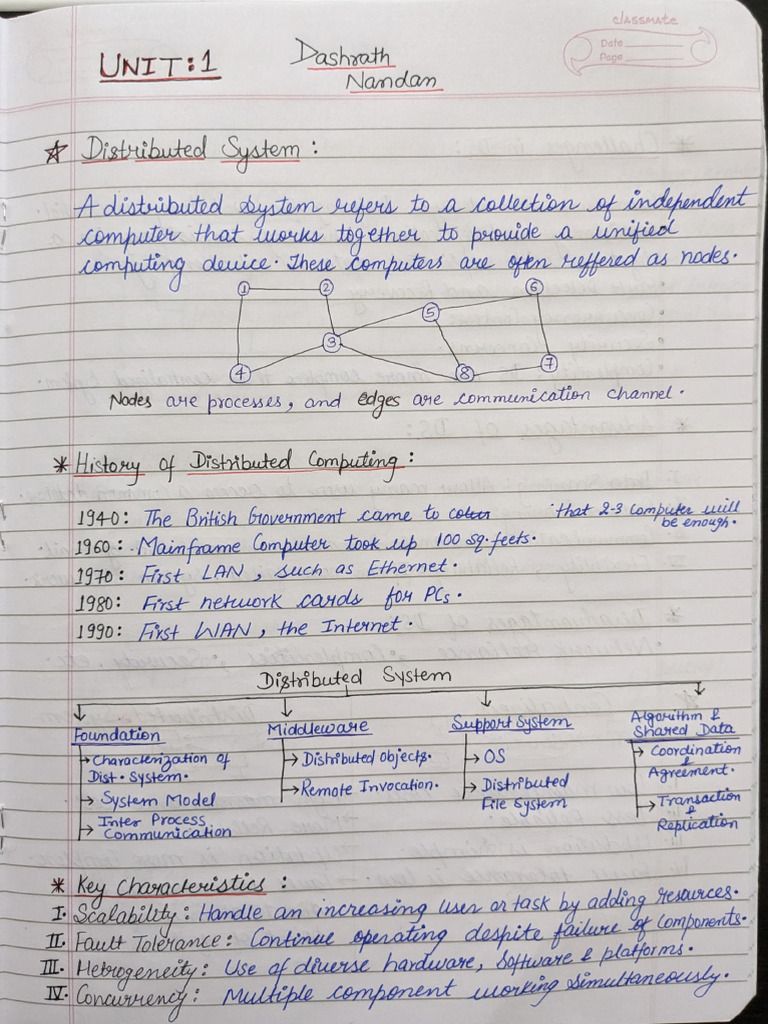 classmate
Date
Page
UNIT:1
Dashrath
Nandan
☆ Distributed System :
A distributed system refers to a collection of independent
computer that works together to provide a unified
computing device. These computers are often reffered as nodes.
1 2 6
5
3
4 8 7
Nodes are processes, and edges are communication channel.
* History of Distributed Computing :
1940: The British Government came to that 2-3 computer will
be enough.
1960: Mainframe Computer took up 100 sq. feets.
1970: First LAN, such as Ethernet.
1980: First network cards for PCs.
1990: First WAN, the Internet.
Distributed System
Foundation
→ Characterization of
Dist. System.
→ System Model
→ Inter Process
Communication
Middleware
→ Distributed objects.
→ Remote Invocation.
Support System
→ OS
→ Distributed
File System
Algorithm &
Shared Data
→ Coordination
&
Agreement.
→ Transaction
&
Replication
* Key Characteristics :
I. Scalability: Handle an increasing user or task by adding resources.
II. Fault Tolerance: Continue operating despite failure of components.
III. Hetrogeneity: Use of diverse hardware, software & platforms.
IV. Concurrency: Multiple component working simultaneously.